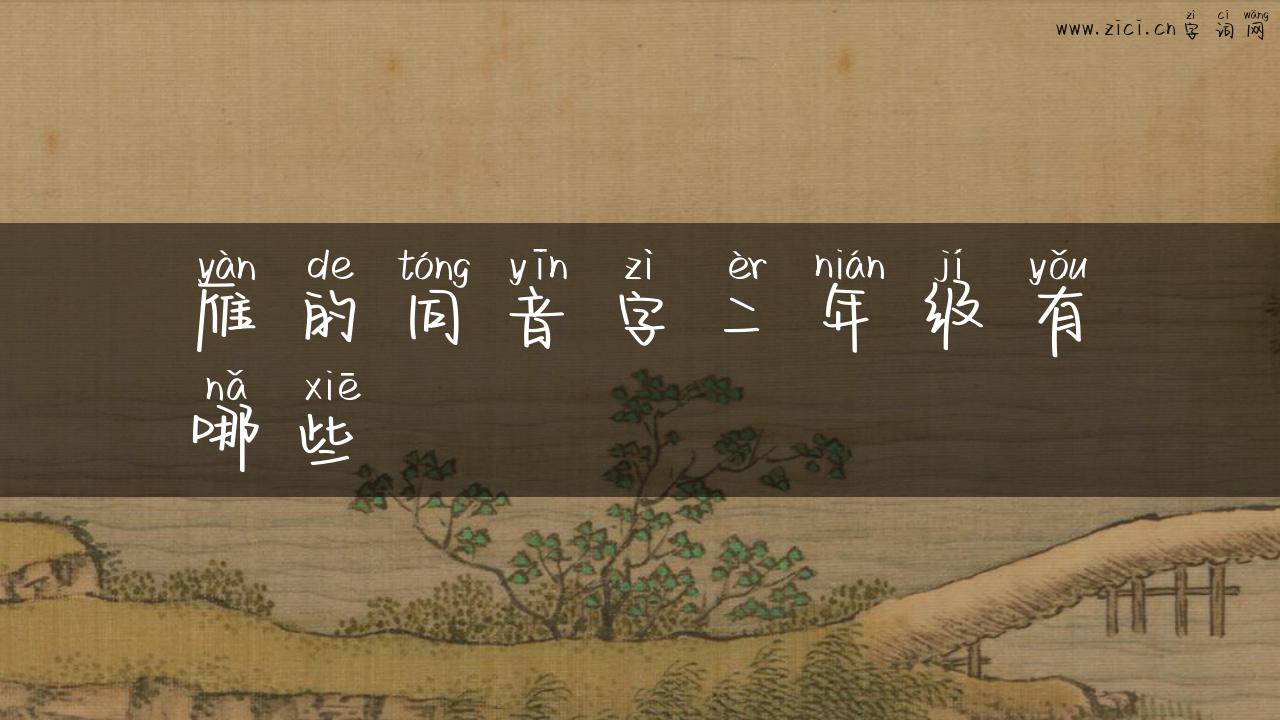 zì cí wǎng
www.zici.cn 字 词 网
yàn de tóng yīn zì èr nián jí yǒu
雁 的 同 音 字 二 年 级 有
nǎ xiē
哪 些